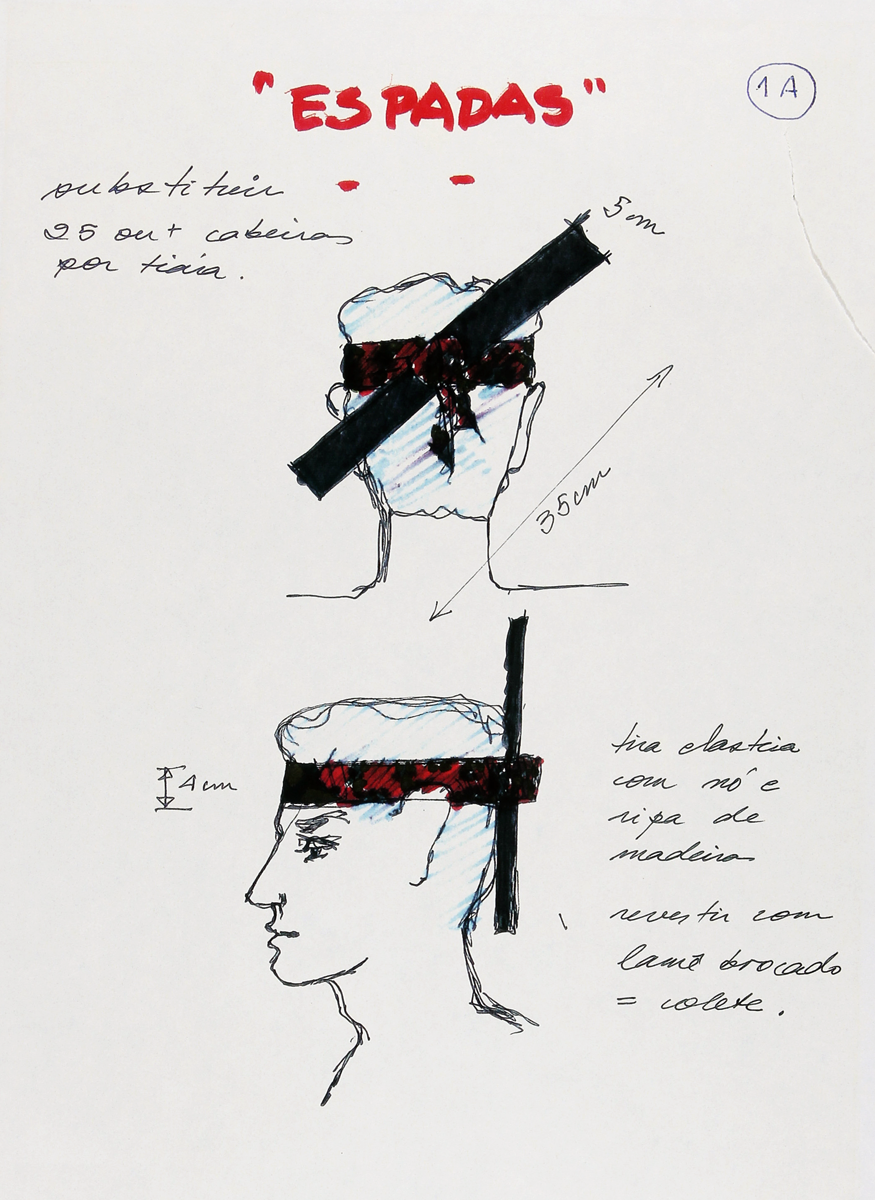 "ESPADAS"
1A
substituir
25 ou + cabeiras
por tiára.
5cm
35cm
4cm
tira elastica
com nó e
ripa de
madeira
revestir com
lamê brocado
= colete.